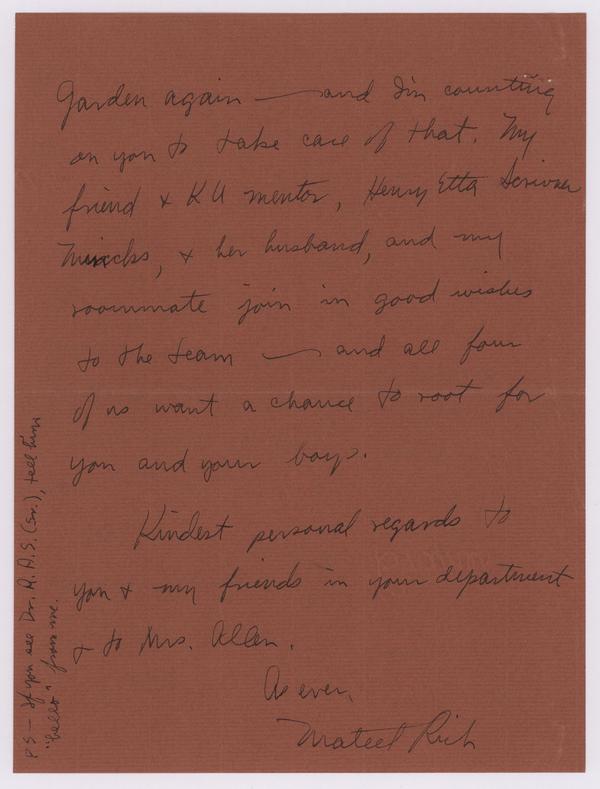 Garden again — and I'm counting
on you to take care of that. My
friend & KU mentor, Henry Etta Scrivner
, & her husband, and my
roommate join in good wishes
to the team — and all four
of us want a chance to root for
you and your boys.
Kindest personal regards to
you & my friends in your department
& to Mrs. Allen.
As ever,
Rich
PS — If you see Dr. (Sr.), tell him
"hello" from me.